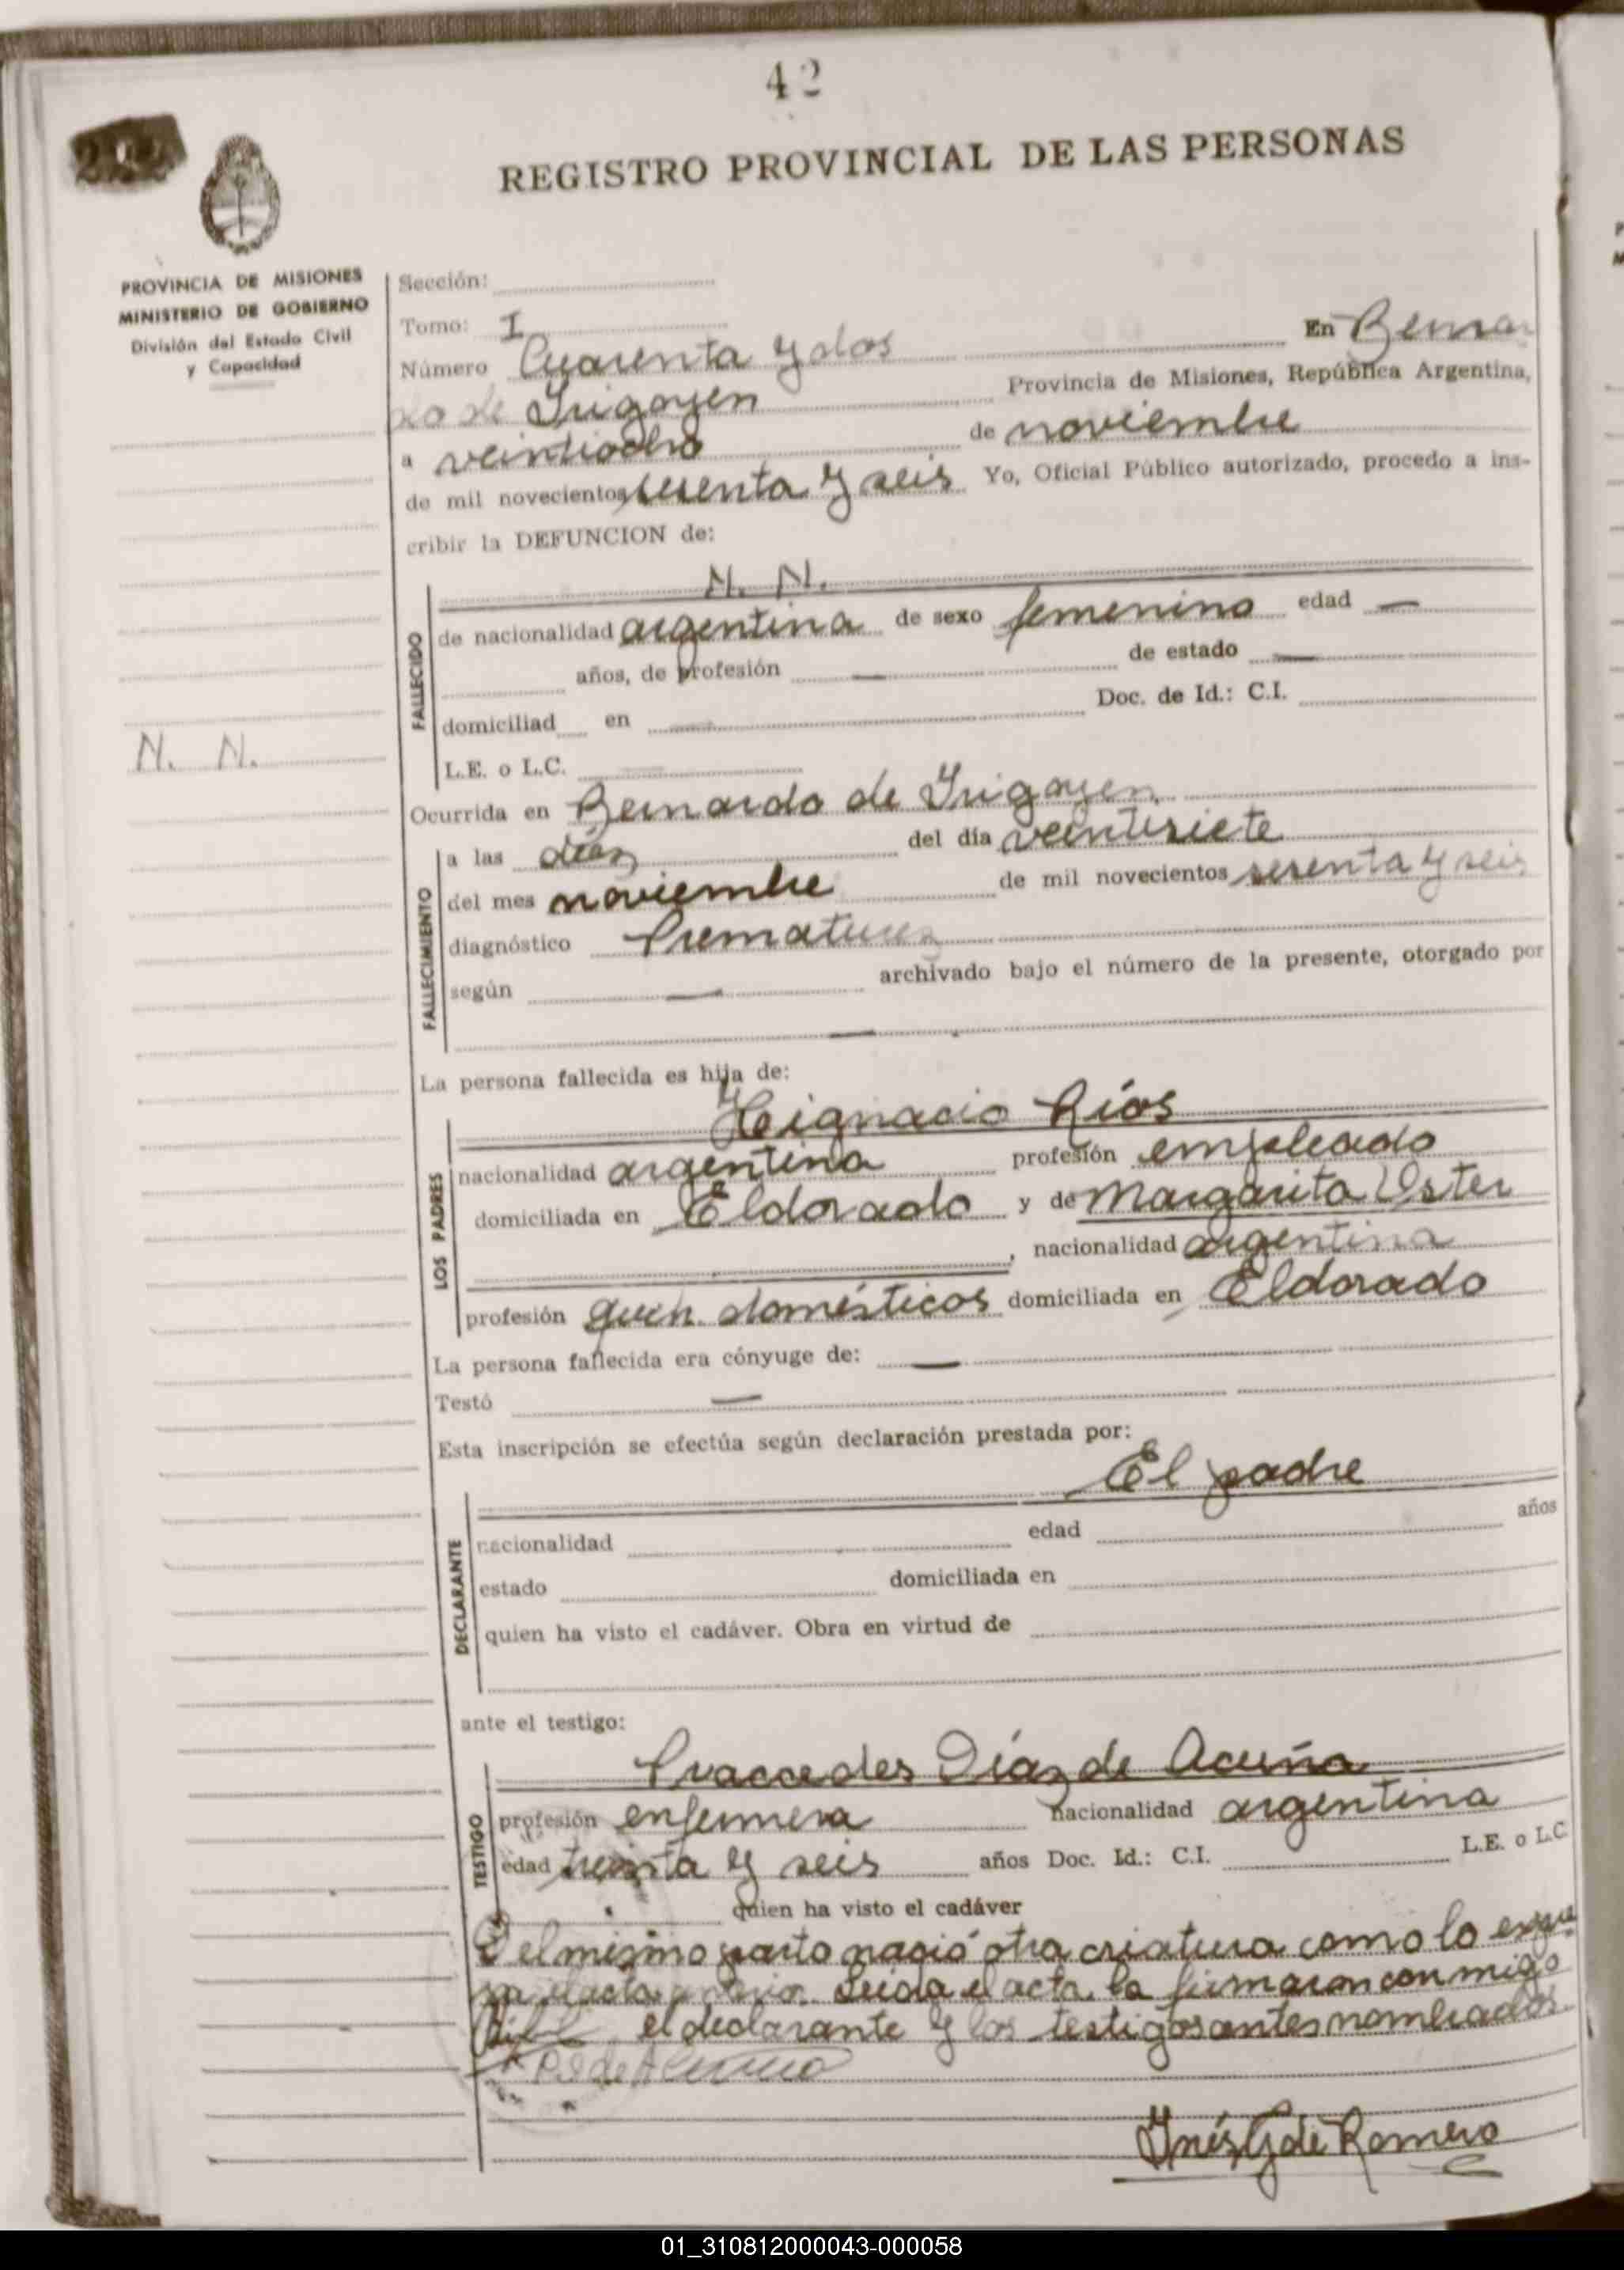 42
REGISTRO PROVINCIAL DE LAS PERSONAS
PROVINCIA DE MISIONES
MINISTERIO DE GOBIERNO
División del Estado Civil
y Capacidad
Sección:
Tomo: I
Número Cuarenta y dos En Bernar
do de Irigoyen Provincia de Misiones, República Argentina,
a veintiocho de noviembre
de mil novecientos sesenta y seis Yo, Oficial Público autorizado, procedo a ins-
cribir la DEFUNCION de:
N. N.
FALLECIDO
de nacionalidad argentina de sexo femenino edad —
años, de profesión — de estado —
domiciliad en — Doc. de Id.: C.I.
N. N.
L.E. o L.C. —
Ocurrida en Bernardo de Irigoyen
FALLECIMIENTO
a las diez del día veintisiete
del mes noviembre de mil novecientos sesenta y seis
diagnóstico Prematurez
según — archivado bajo el número de la presente, otorgado por
—
La persona fallecida es hija de:
LOS PADRES
Higinacio Ríos
nacionalidad argentina profesión empleado
domiciliada en Eldorado y de Margarita Oster
, nacionalidad argentina
profesión queh. domésticos domiciliada en Eldorado
La persona fallecida era cónyuge de: —
Testó —
Esta inscripción se efectúa según declaración prestada por:
El padre
DECLARANTE
nacionalidad edad años
estado domiciliada en
quien ha visto el cadáver. Obra en virtud de
ante el testigo:
TESTIGO
Praccedes Díaz de Acuña
profesión enfermera nacionalidad argentina
edad treinta y seis años Doc. Id.: C.I. L.E. o L.C
quien ha visto el cadáver
Del mismo parto nació otra criatura como lo expre
sa el acta anterior. Leída el acta, la firmaron conmigo
el declarante y los testigos antes nombrados.
P. D de Acuña
Inés G de Romero
01_310812000043-000058